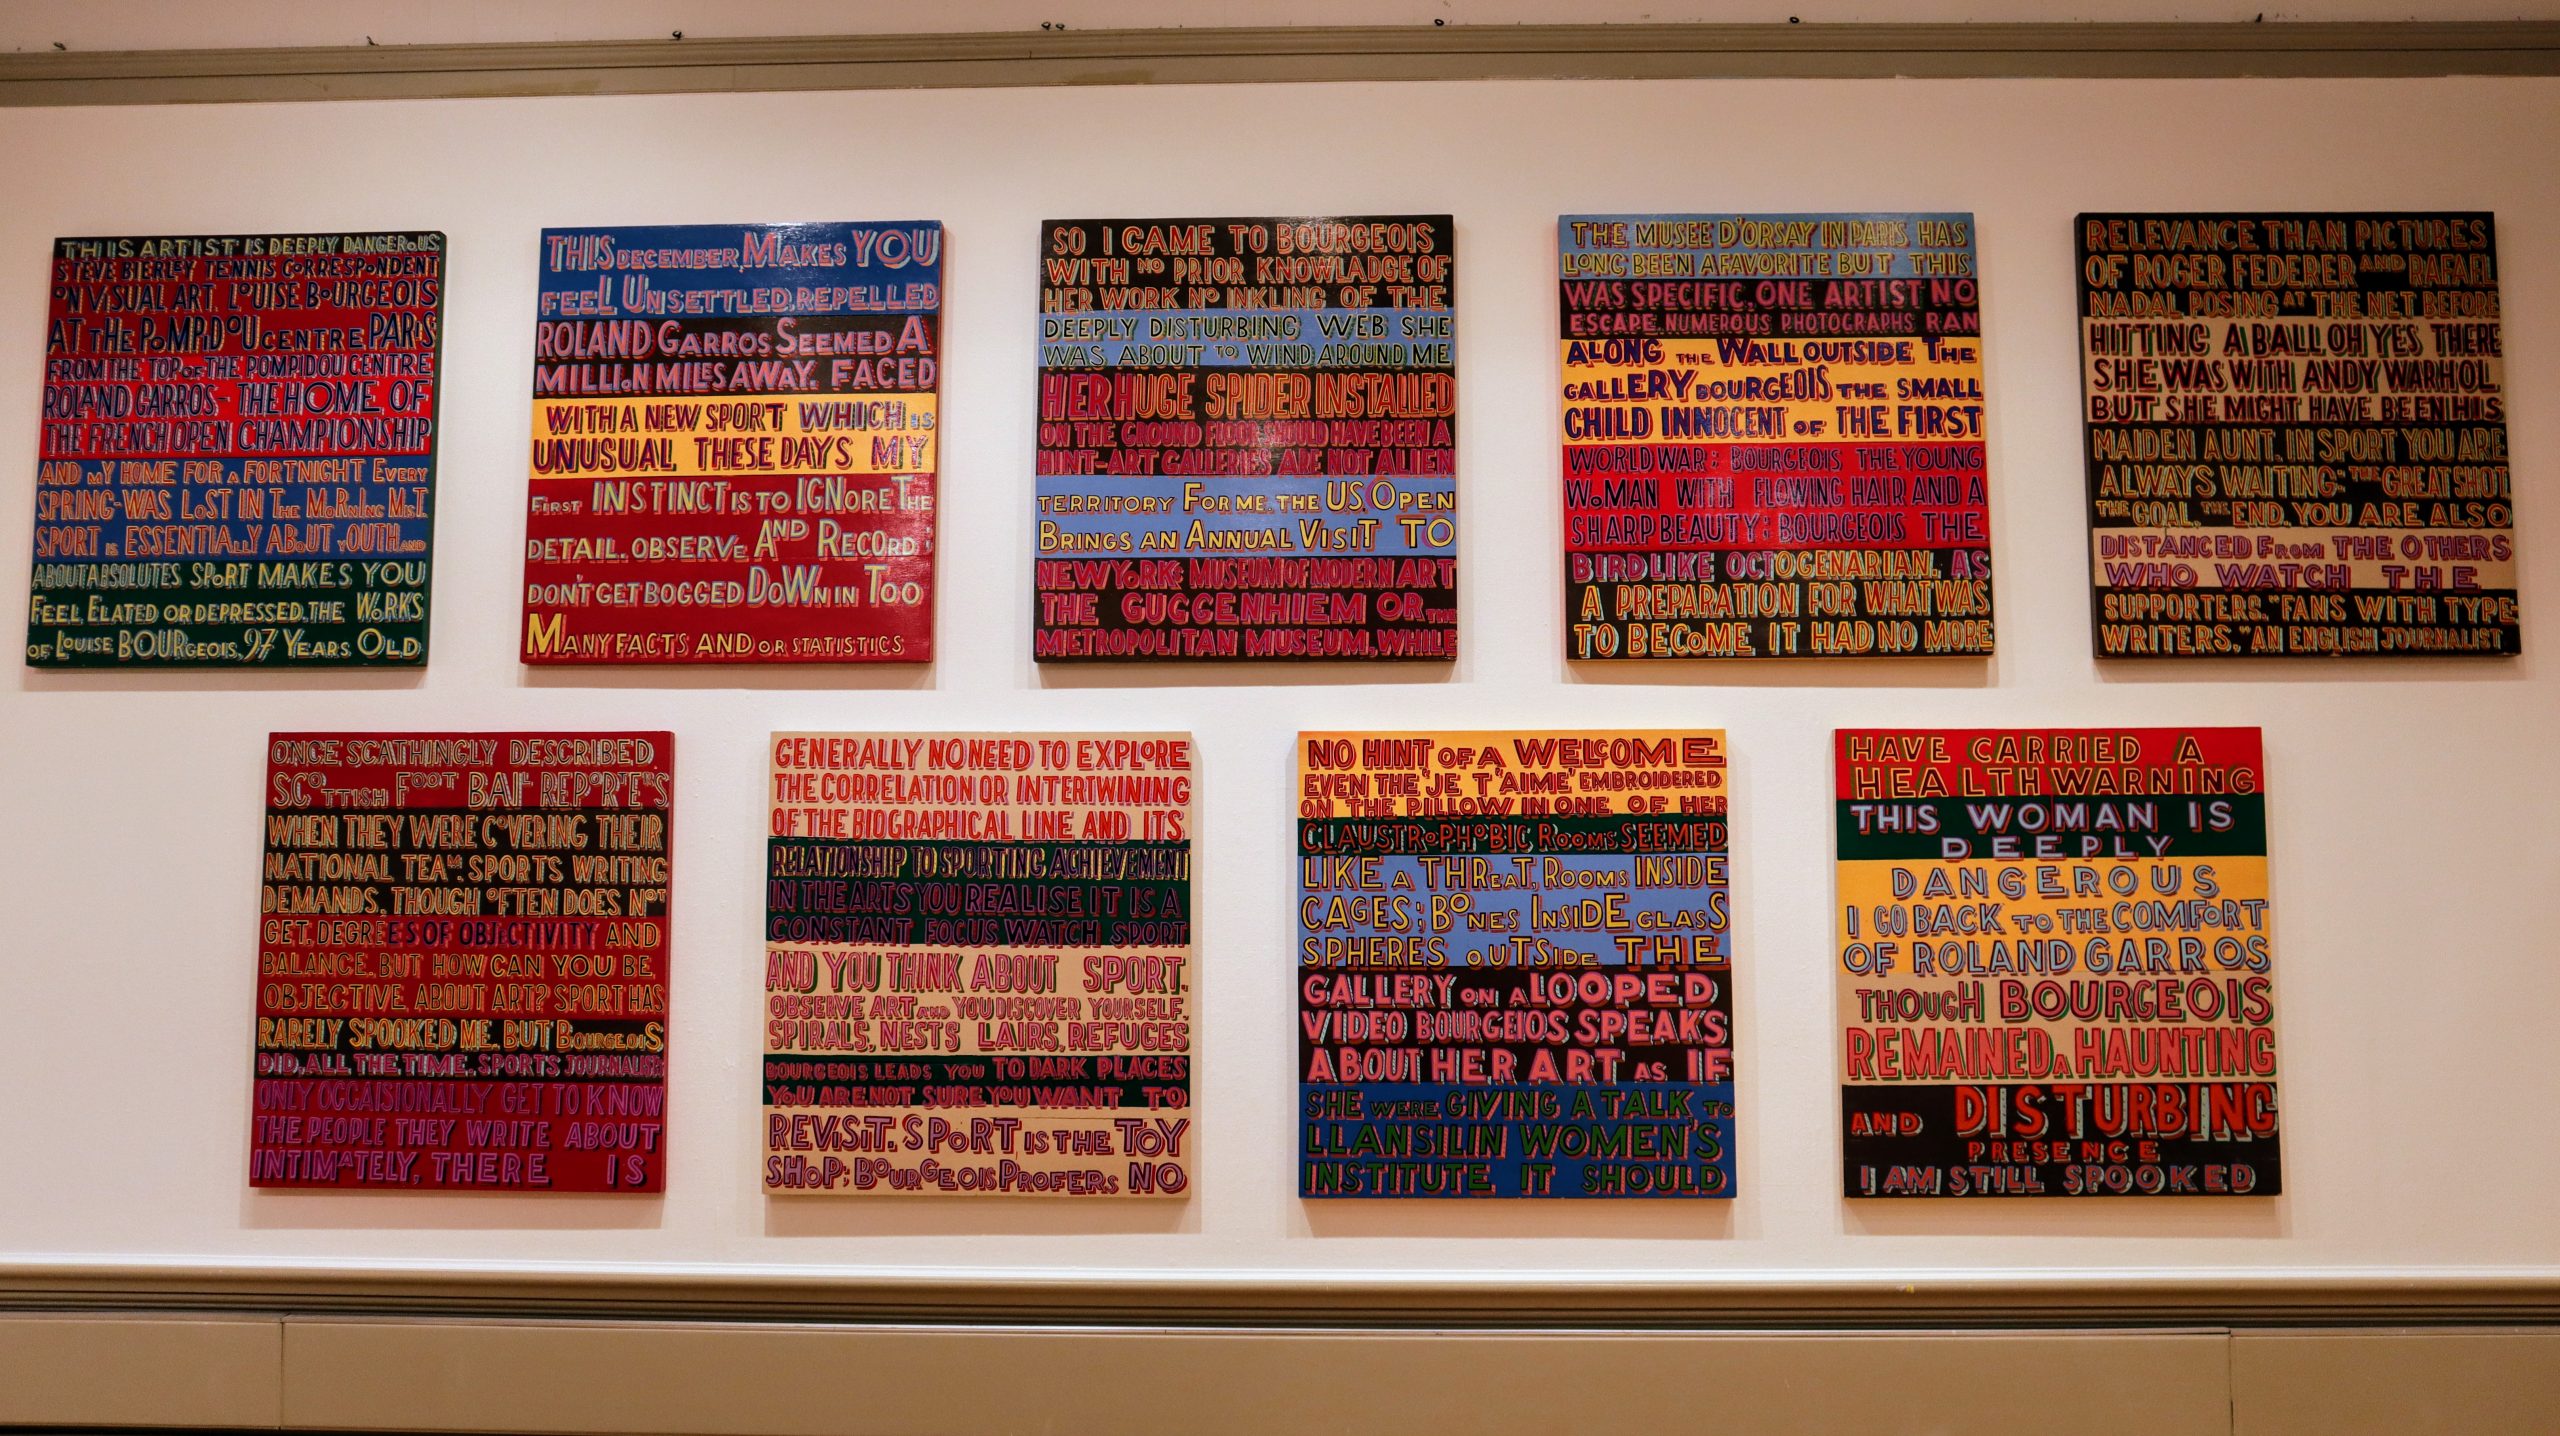 THIS ARTIST IS DEEPLY DANGEROUS,
STEVE BIERLEY TENNIS CORRESPONDENT
ON VISUAL ART. LOUISE BOURGEOIS
AT THE POMPIDOU CENTRE PARIS
FROM THE TOP OF THE POMPIDOU CENTRE
ROLAND GARROS- THE HOME OF
THE FRENCH OPEN CHAMPIONSHIP
AND MY HOME FOR A FORTNIGHT EVERY
SPRING-WAS LOST IN THE MORNING MIST.
SPORT IS ESSENTIALLY ABOUT YOUTH AND
ABOUT ABSOLUTES SPORT MAKES YOU
FEEL ELATED OR DEPRESSED. THE WORKS
OF LOUISE BOURGEOIS, 97 YEARS OLD
THIS DECEMBER, MAKES YOU
FEEL UNSETTLED, REPELLED
ROLAND GARROS SEEMED A
MILLION MILES AWAY. FACED
WITH A NEW SPORT WHICH IS
UNUSUAL THESE DAYS MY
FIRST INSTINCT IS TO IGNORE THE
DETAIL. OBSERVE AND RECORD;
DON'T GET BOGGED DOWN IN TOO
MANY FACTS AND OR STATISTICS
SO I CAME TO BOURGEOIS
WITH NO PRIOR KNOWLADGE OF
HER WORK NO INKLING OF THE
DEEPLY DISTURBING WEB SHE
WAS ABOUT TO WIND AROUND ME
HER HUGE SPIDER INSTALLED
ON THE GROUND FLOOR SHOULD HAVE BEEN A
HINT-ART GALLERIES ARE NOT ALIEN
TERRITORY FOR ME. THE US. OPEN
BRINGS AN ANNUAL VISIT TO
NEW YORK: MUSEUM OF MODERN ART
THE GUGGENHIEM OR THE
METROPOLITAN MUSEUM, WHILE
THE MUSEE D'ORSAY IN PARIS HAS
LONG BEEN A FAVORITE BUT THIS
WAS SPECIFIC, ONE ARTIST NO
ESCAPE. NUMEROUS PHOTOGRAPHS RAN
ALONG THE WALL OUTSIDE THE
GALLERY BOURGEOIS THE SMALL
CHILD INNOCENT OF THE FIRST
WORLD WAR: BOURGEOIS THE YOUNG
WOMAN WITH FLOWING HAIR AND A
SHARP BEAUTY: BOURGEOIS THE
BIRDLIKE OCTOGENARIAN. AS
A PREPARATION FOR WHAT WAS
TO BECOME IT HAD NO MORE
RELEVANCE THAN PICTURES
OF ROGER FEDERER AND RAFAEL
NADAL POSING AT THE NET BEFORE
HITTING A BALL OH YES THERE
SHE WAS WITH ANDY WARHOL,
BUT SHE MIGHT HAVE BEEN HIS
MAIDEN AUNT. IN SPORT YOU ARE
ALWAYS WAITING: THE GREAT SHOT
THE GOAL, THE END. YOU ARE ALSO
DISTANCED FROM THE OTHERS
WHO WATCH THE
SUPPORTERS. "FANS WITH TYPE-
WRITERS," AN ENGLISH JOURNALIST
ONCE, SCATHINGLY DESCRIBED
SCOTTISH FOOT BALL REPORTERS
WHEN THEY WERE COVERING THEIR
NATIONAL TEAM. SPORTS WRITING
DEMANDS, THOUGH OFTEN DOES NOT
GET, DEGREES OF OBJECTIVITY AND
BALANCE. BUT HOW CAN YOU BE
OBJECTIVE ABOUT ART? SPORT HAS
RARELY SPOOKED ME. BUT BOURGEOIS
DID, ALL THE TIME. SPORTS JOURNALISTS
ONLY OCCAISIONALLY GET TO KNOW
THE PEOPLE THEY WRITE ABOUT
INTIMATELY, THERE IS
GENERALLY NO NEED TO EXPLORE
THE CORRELATION OR INTERTWINING
OF THE BIOGRAPHICAL LINE AND ITS
RELATIONSHIP TO SPORTING ACHIEVEMENT
IN THE ARTS YOU REALISE IT IS A
CONSTANT FOCUS WATCH SPORT
AND YOU THINK ABOUT SPORT.
OBSERVE ART AND YOU DISCOVER YOURSELF.
SPIRALS, NESTS LAIRS, REFUGES
BOURGEOIS LEADS YOU TO DARK PLACES
YOU ARE NOT SURE YOU WANT TO
REVISIT. SPORT IS THE TOY
SHOP; BOURGEOIS PROFERS NO
NO HINT OF A WELCOME
EVEN THE "JE T"AIME" EMBROIDERED
ON THE PILLOW IN ONE OF HER
CLAUSTROPHOBIC ROOMS SEEMED
LIKE A THREAT, ROOMS INSIDE
CAGES; BONES INSIDE GLASS
SPHERES OUTSIDE THE
GALLERY ON A LOOPED
VIDEO BOURGEIOS SPEAKS
ABOUT HER ART AS IF
SHE WERE GIVING A TALK TO
LLANSILIN WOMEN'S
INSTITUTE IT SHOULD
HAVE CARRIED A
HEALTH WARNING
THIS WOMAN IS
DEEPLY
DANGEROUS
I GO BACK TO THE COMFORT
OF ROLAND GARROS
THOUGH BOURGEOIS
REMAINED A HAUNTING
AND DISTURBING
PRESENCE
I AM STILL SPOOKED